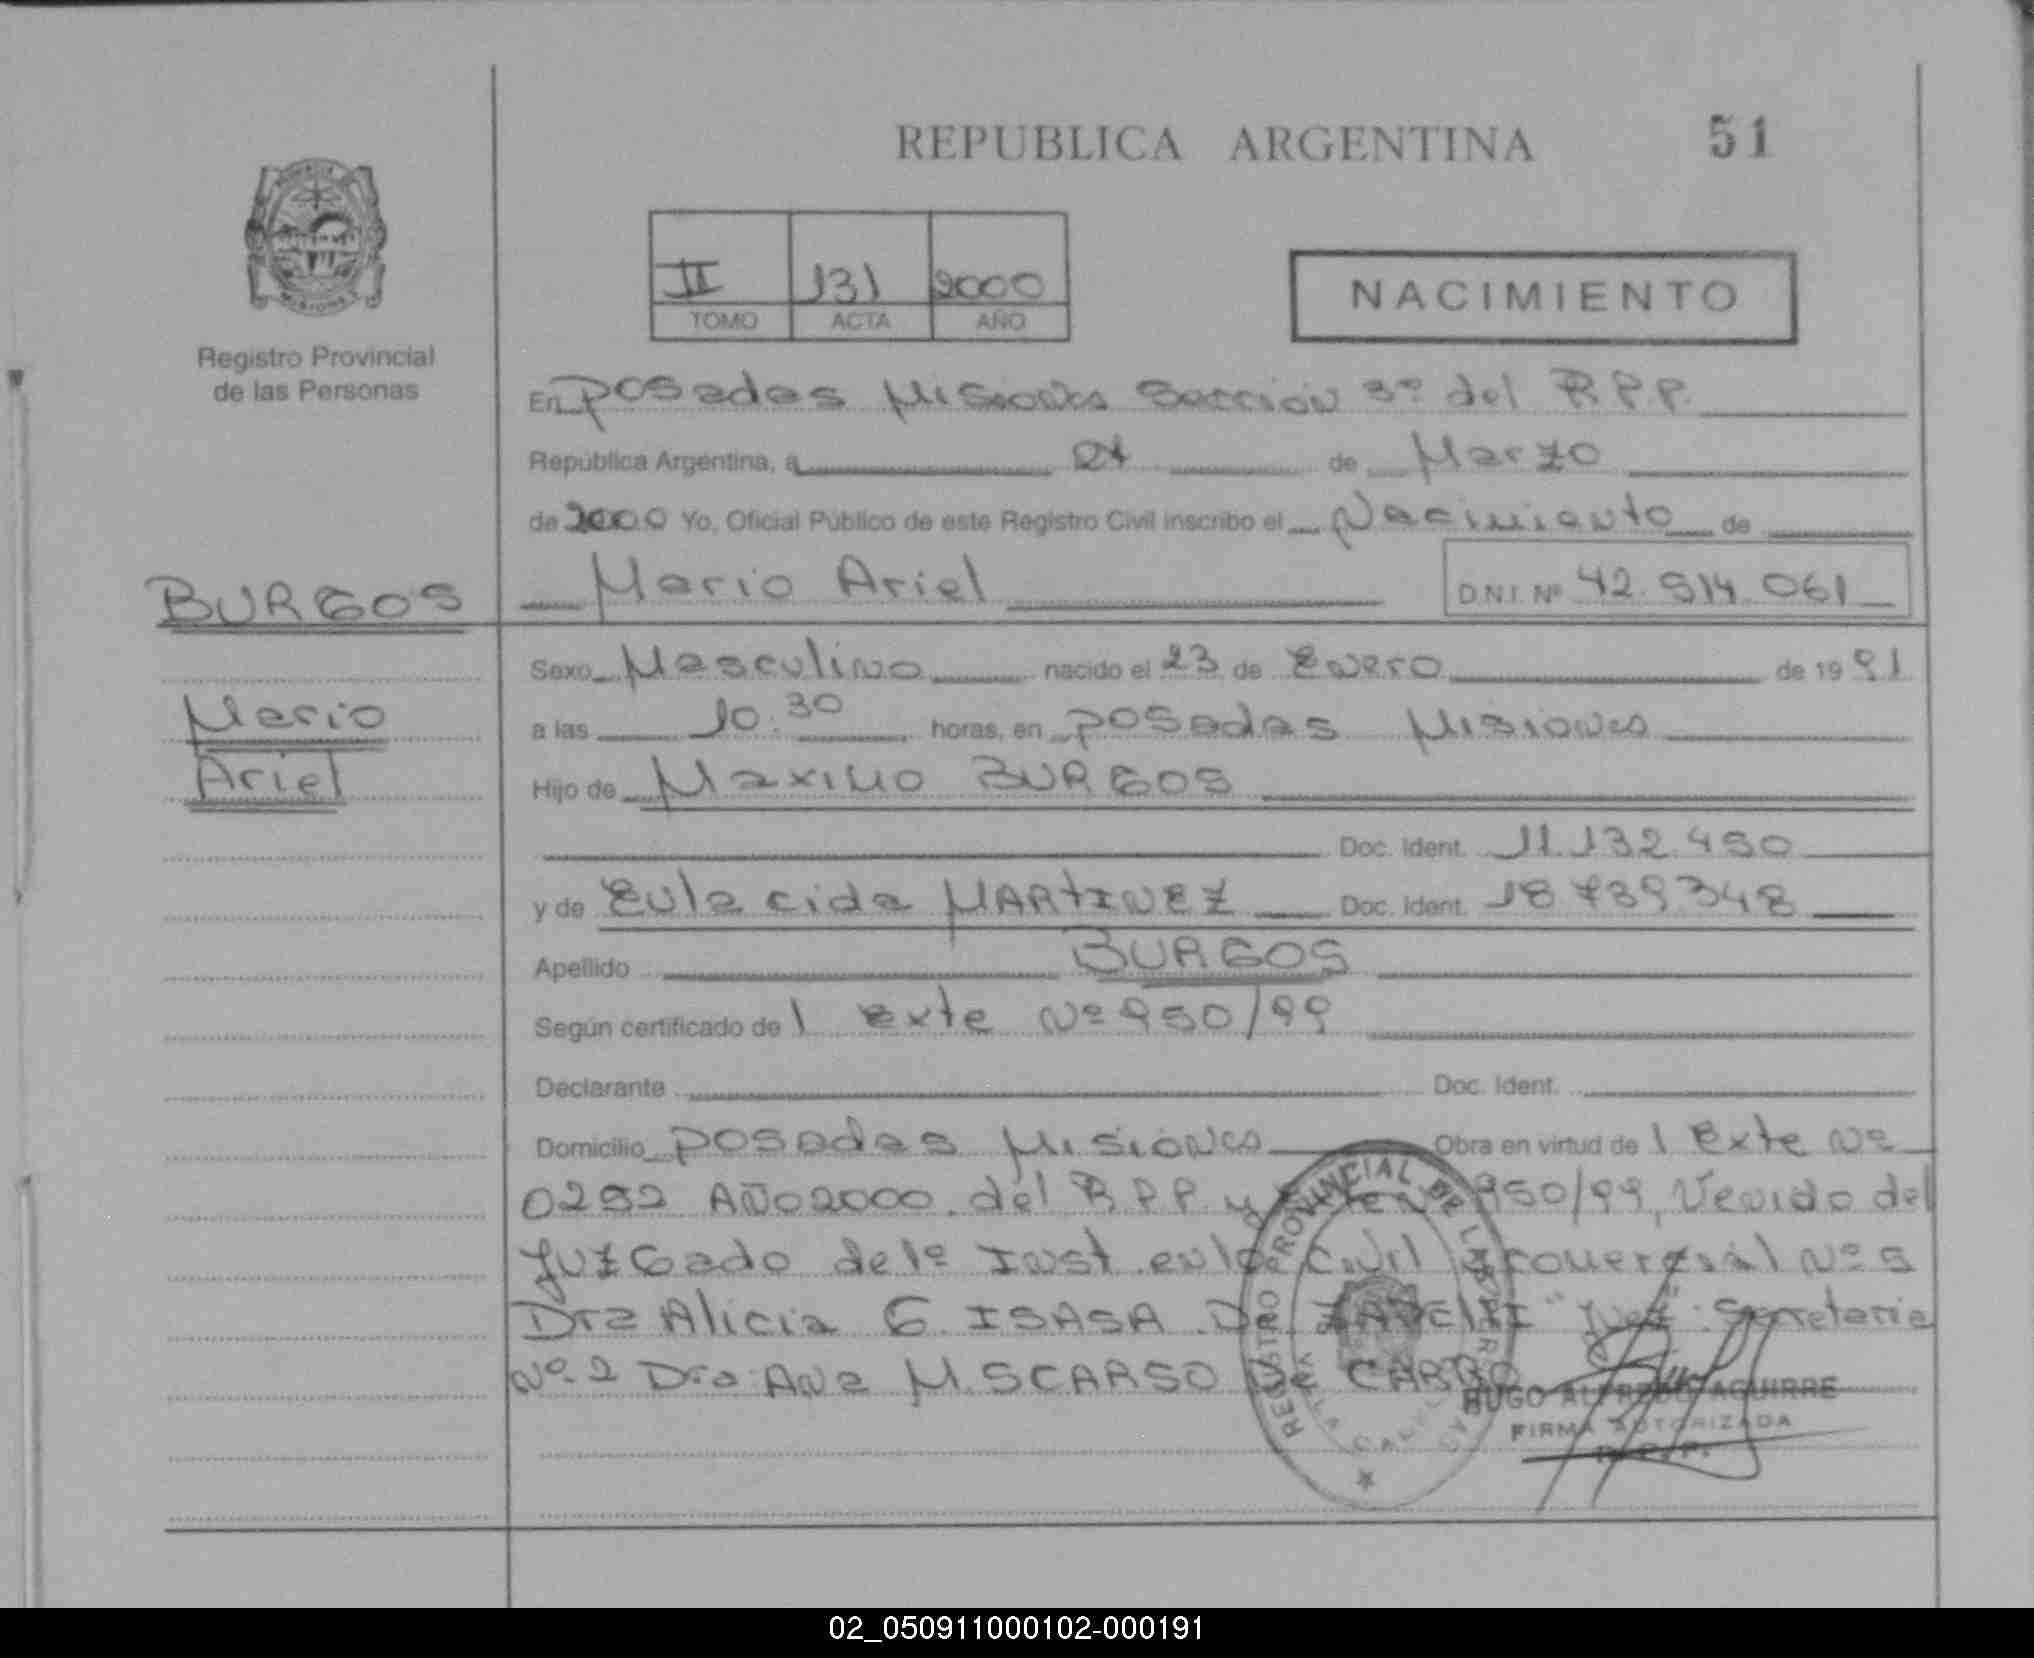 REPUBLICA ARGENTINA 51
II 131 2000
TOMO ACTA AÑO
NACIMIENTO
Registro Provincial
de las Personas
En Posadas Misiones Sección 3º del R.P.P.
República Argentina, a 24 de Marzo
de 2000 Yo, Oficial Público de este Registro Civil inscribo el Nacimiento de
BURGOS
Mario Ariel D.N.I. Nº 42.914.061
Sexo Masculino nacido el 23 de Enero de 1991
Mario
a las 10.30 horas, en Posadas Misiones
Ariel
Hijo de Maximo BURGOS
Doc. Ident. 11.132.490
y de Eula cida MARTINEZ Doc. Ident. 18.739.348
Apellido BURGOS
Según certificado de 1 Exte Nº 950/99
Declarante Doc. Ident.
Domicilio Posadas Misiones Obra en virtud de 1 Exte Nº
0292 AÑO 2000. del R.P.P. y 950/99, Venido del
Juzgado de 1º Inst en lo Civil y Comercial Nº 5
Dra Alicia G. ISASA De "Juez". Secretaria
Nº 2 Dra Ana M. SCARSO De
REGISTRO PROVINCIAL DE LAS PERSONAS
HUGO ALFREDO AGUIRRE
FIRMA AUTORIZADA
R.P.P.
02_050911000102-000191